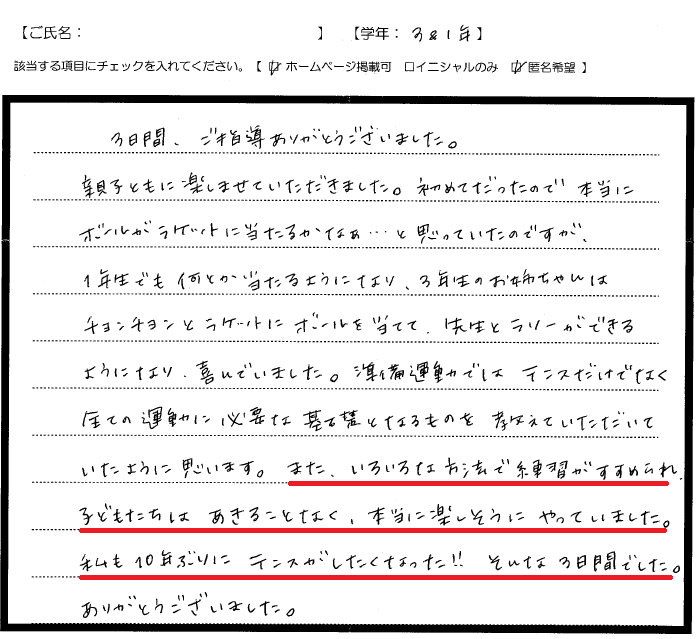 【ご氏名： 】 【学年： 3&1年】
該当する項目にチェックを入れてください。【 ☑ ホームページ掲載可 □イニシャルのみ ☑匿名希望 】
3日間、ご指導ありがとうございました。
親子ともに楽しませていただきました。初めてだったので 本当に
ボールがラケットに当たるかなぁ…と思っていたのですが、
1年生でも何とか当たるようになり、3年生のお姉ちゃんは
チョンチョンとラケットにボールを当てて、先生とラリーができる
ようになり、喜んでいました。準備運動では テニスだけでなく
全ての運動に必要な基礎となるものを 教えていただいて
いたように思います。また、いろいろな方法で練習がすすめられ、
子どもたちは あきることなく、本当に楽しそうに やっていました。
私も10年ぶりに テニスがしたくなった!! そんな3日間でした。
ありがとうございました。